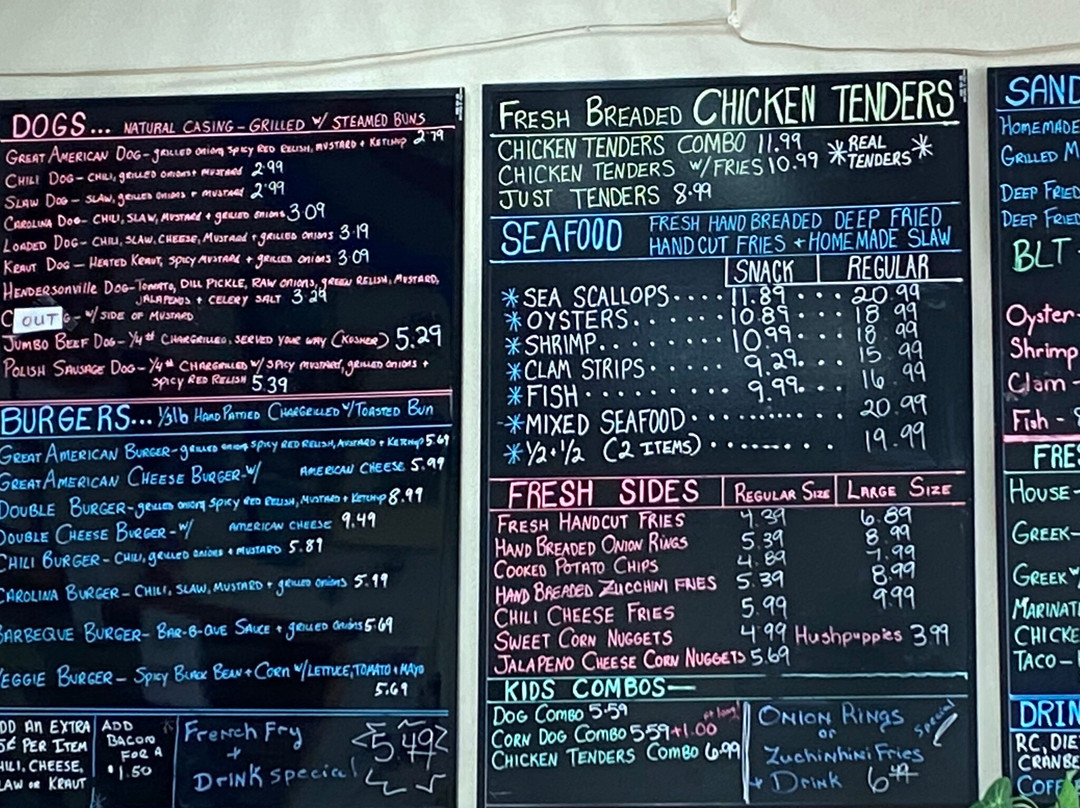 DOGS... NATURAL CASING-GRILLED W/ STEAMED BUNS
GREAT AMERICAN DOG-GRILLED ONIONS, SPICY RED RELISH, MUSTARD + KETCHUP 2.79
CHILI DOG-CHILI, GRILLED ONIONS + MUSTARD 2.99
SLAW DOG-SLAW, GRILLED ONIONS + MUSTARD 2.99
CAROLINA DOG-CHILI, SLAW, MUSTARD + GRILLED ONIONS 3.09
LOADED DOG-CHILI, SLAW, CHEESE, MUSTARD + GRILLED ONIONS 3.19
KRAUT DOG-HEATED KRAUT, SPICY MUSTARD + GRILLED ONIONS 3.09
HENDERSONVILLE DOG-TOMATO, DILL PICKLE, RAW ONIONS, GREEN RELISH, MUSTARD,
JALAPENOS + CELERY SALT 3.29
C OUT G-W/ SIDE OF MUSTARD
JUMBO BEEF DOG-1/4# CHARGRILLED, SERVED YOUR WAY (KOSHER) 5.29
POLISH SAUSAGE DOG-1/4# CHARGRILLED W/ SPICY MUSTARD, GRILLED ONIONS +
SPICY RED RELISH 5.39
BURGERS... 1/3 lb HAND PATTIED CHARGRILLED W/ TOASTED BUN
GREAT AMERICAN BURGER-GRILLED ONIONS, SPICY RED RELISH, MUSTARD + KETCHUP 5.69
GREAT AMERICAN CHEESE BURGER-W/ AMERICAN CHEESE 5.99
DOUBLE BURGER-GRILLED ONIONS, SPICY RED RELISH, MUSTARD + KETCHUP 8.99
DOUBLE CHEESE BURGER-W/ AMERICAN CHEESE 9.49
CHILI BURGER-CHILI, GRILLED ONIONS + MUSTARD 5.89
CAROLINA BURGER-CHILI, SLAW, MUSTARD + GRILLED ONIONS 5.99
BARBEQUE BURGER-BAR-B-QUE SAUCE + GRILLED ONIONS 5.69
VEGGIE BURGER-SPICY BLACK BEAN + CORN W/ LETTUCE, TOMATO + MAYO
5.69
DD AN EXTRA
5¢ PER ITEM
HILI, CHEESE,
LAW OR KRAUT
ADD
BACON
FOR A
$1.50
French Fry
+
Drink special
5.49
FRESH BREADED CHICKEN TENDERS
CHICKEN TENDERS COMBO 11.99
CHICKEN TENDERS W/FRIES 10.99
JUST TENDERS 8.99
*REAL
TENDERS*
SEAFOOD
FRESH HAND BREADED DEEP FRIED
HAND CUT FRIES + HOMEMADE SLAW
SNACK REGULAR
*SEA SCALLOPS.... 11.89 ... 20.99
*OYSTERS...... 10.89 ... 18.99
*SHRIMP....... 10.99 ... 18.99
*CLAM STRIPS..... 9.29 ... 15.99
*FISH........ 9.99 ... 16.99
*MIXED SEAFOOD............ 20.99
*1/2+1/2 (2 ITEMS) ........ 19.99
FRESH SIDES REGULAR SIZE LARGE SIZE
FRESH HANDCUT FRIES 4.39 6.89
HAND BREADED ONION RINGS 5.39 8.99
COOKED POTATO CHIPS 4.89 7.99
HAND BREADED ZUCCHINI FRIES 5.39 8.99
CHILI CHEESE FRIES 5.99 9.99
SWEET CORN NUGGETS 4.99 Hushpuppies 3.99
JALAPENO CHEESE CORN NUGGETS 5.69
KIDS COMBOS—
DOG COMBO 5.59
CORN DOG COMBO 5.59 +1.00
CHICKEN TENDERS COMBO 6.99
ONION RINGS
or
Zuchinhini Fries
+ Drink 6.49
special
SAND
HOMEMADE
GRILLED M
DEEP FRIED
DEEP FRIED
BLT
Oyster-
Shrimp
Clam-
Fish-8
FRES
HOUSE-
GREEK-
GREEK W
MARINAT
CHICKE
TACO-
DRIN
RC, DIE
CRANBE
COFF